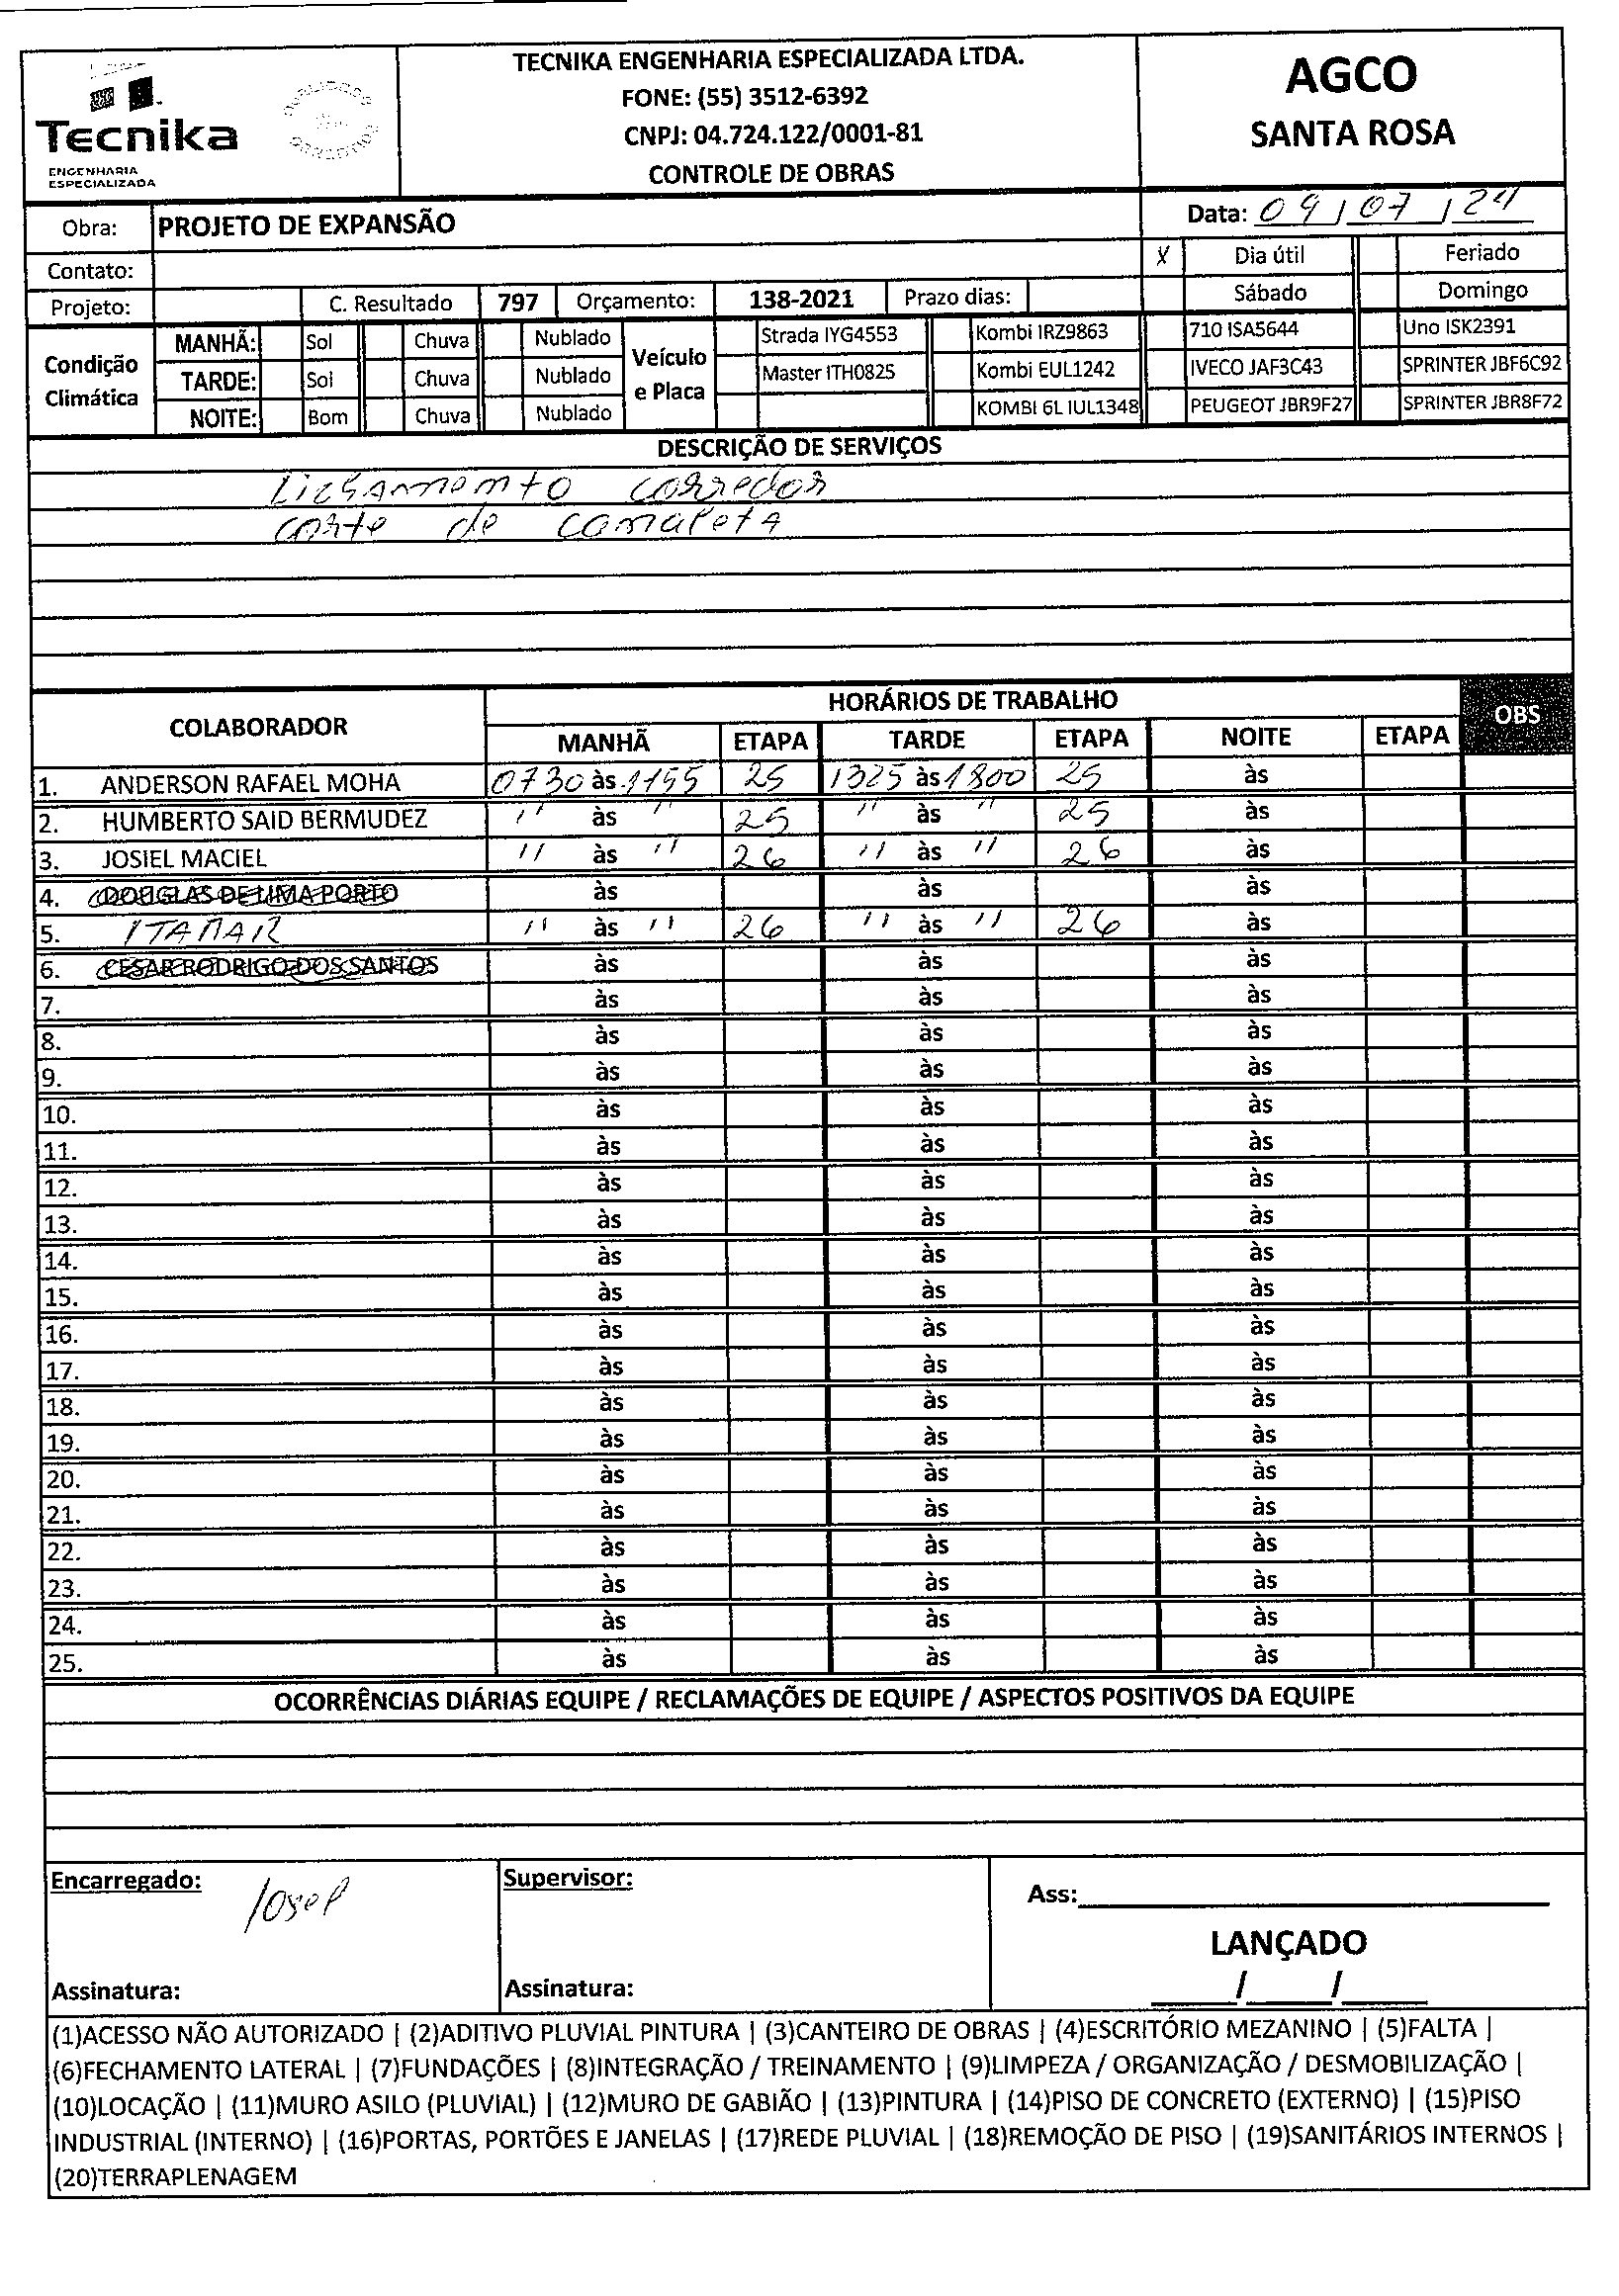 Tecnika
ENGENHARIA
ESPECIALIZADA
TECNIKA ENGENHARIA ESPECIALIZADA LTDA.
FONE: (55) 3512-6392
CNPJ: 04.724.122/0001-81
CONTROLE DE OBRAS
AGCO
SANTA ROSA
Obra: PROJETO DE EXPANSÃO
Data: 09/07/24
Contato:
X Dia útil Feriado
Projeto: C. Resultado 797 Orçamento: 138-2021 Prazo dias: Sábado Domingo
Condição Climática
MANHÃ: Sol Chuva Nublado
TARDE: Sol Chuva Nublado
NOITE: Bom Chuva Nublado
Veículo e Placa
Strada IYG4553 Kombi IRZ9863 710 ISA5644 Uno ISK2391
Master ITH0825 Kombi EUL1242 IVECO JAF3C43 SPRINTER JBF6C92
KOMBI 6L IUL1348 PEUGEOT JBR9F27 SPRINTER JBR8F72
DESCRIÇÃO DE SERVIÇOS
corredor
corte de canaleta
COLABORADOR HORÁRIOS DE TRABALHO OBS
MANHÃ ETAPA TARDE ETAPA NOITE ETAPA
1. ANDERSON RAFAEL MOHA 0730 às 1155 25 1325 às 1800 25 às
2. HUMBERTO SAID BERMUDEZ " às " 25 " às " 25 às
3. JOSIEL MACIEL " às " 26 " às " 26 às
4. DOUGLAS DE LIMA PORTO às às às
5. ITAMAR " às " 26 " às " 26 às
6. CESAR RODRIGO DOS SANTOS às às às
7. às às às
8. às às às
9. às às às
10. às às às
11. às às às
12. às às às
13. às às às
14. às às às
15. às às às
16. às às às
17. às às às
18. às às às
19. às às às
20. às às às
21. às às às
22. às às às
23. às às às
24. às às às
25. às às às
OCORRÊNCIAS DIÁRIAS EQUIPE / RECLAMAÇÕES DE EQUIPE / ASPECTOS POSITIVOS DA EQUIPE
Encarregado: Supervisor: Ass:
LANÇADO
Assinatura: Assinatura: / /
(1)ACESSO NÃO AUTORIZADO | (2)ADITIVO PLUVIAL PINTURA | (3)CANTEIRO DE OBRAS | (4)ESCRITÓRIO MEZANINO | (5)FALTA |
(6)FECHAMENTO LATERAL | (7)FUNDAÇÕES | (8)INTEGRAÇÃO / TREINAMENTO | (9)LIMPEZA / ORGANIZAÇÃO / DESMOBILIZAÇÃO |
(10)LOCAÇÃO | (11)MURO ASILO (PLUVIAL) | (12)MURO DE GABIÃO | (13)PINTURA | (14)PISO DE CONCRETO (EXTERNO) | (15)PISO
INDUSTRIAL (INTERNO) | (16)PORTAS, PORTÕES E JANELAS | (17)REDE PLUVIAL | (18)REMOÇÃO DE PISO | (19)SANITÁRIOS INTERNOS |
(20)TERRAPLENAGEM